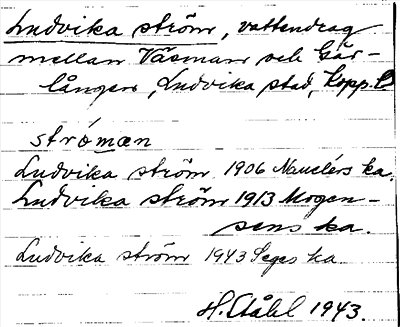 Ludvika ström, vattendrag
mellan Väsman och Går-
lången, Ludvika stad, Kopp. l.
strömen
Ludvika ström 1906 Nauclérs ka.
Ludvika ström 1913 Mogen-
sens ka.
Ludvika ström 1943 Seges ka
H. Ståhl 1943.